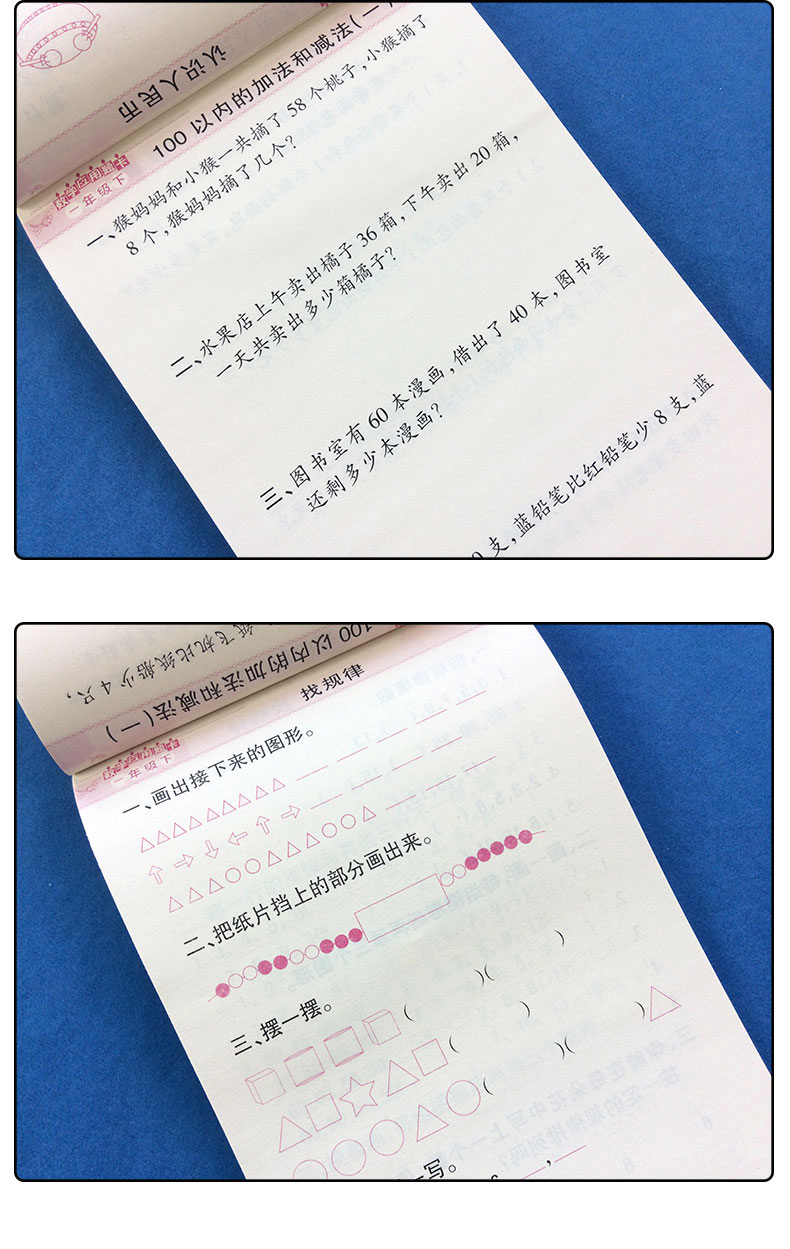 认识人民币
100以内的加法和减法(一)
数学应用题卡
一年级下
一、猴妈妈和小猴一共摘了58个桃子,小猴摘了
8个,猴妈妈摘了几个?
二、水果店上午卖出橘子36箱,下午卖出20箱,
一天共卖出多少箱橘子?
三、图书室有60本漫画,借出了40本,图书室
还剩多少本漫画?
0支,蓝铅笔比红铅笔少8支,蓝
纸飞机比纸船少4只,
100以内的加法和减法(一)
找规律
数学应用题卡
一年级下
一、画出接下来的图形。
二、把纸片挡上的部分画出来。
三、摆一摆。
( )( )
( )
( )( )
一写。